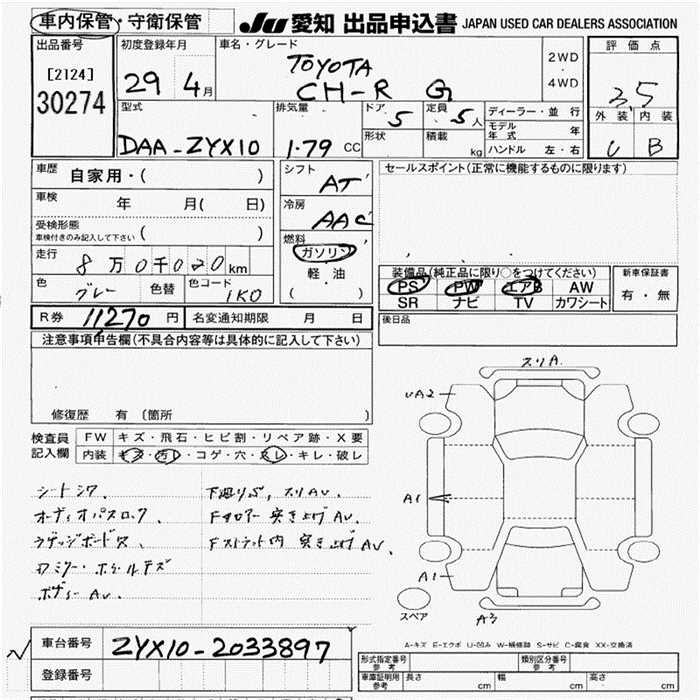 車内保管・守衛保管
JU 愛知 出品申込書 JAPAN USED CAR DEALERS ASSOCIATION
出品番号
[2124]
30274
初度登録年月
29年4月
車名・グレード
TOYOTA
CH-R G
2WD
・
4WD
評価点
3.5
外装 内装
U B
型式
DAA-ZYX10
排気量
1.79 CC
ドア 5
形状
定員 5人
積載 kg
ディーラー・並行
モデル年式 年
ハンドル 左・右
車歴
自家用・( )
車検 年 月( 日)
受検形態
車検付きのみ記入して下さい ( )
走行
8万0千020km
色 グレー
色替
色コード 1K0
シフト
AT
冷房
AAC
燃料
ガソリン
軽・油
( )
セールスポイント(正常に機能するものに限ります)
装備品(純正品に限り○をつけてください)
PS PW エアB AW
SR ナビ TV カワシート
新車保証書
有・無
R券 11270円
名変通知期限 月 日
後日品
注意事項申告欄(不具合内容等は具体的に記入して下さい)
修復歴 有(箇所 )
検査員
記入欄
FW キズ・飛石・ヒビ割・リペア跡・X要
内装 キズ・汚レ・コゲ・穴・スレ・キレ・破レ
シートシワ
オーディオパスロック、
ラゲッジボード欠、
ドアミラー・ホイールキズ
ボディーAU、
下廻りサビ、スリAU、
Fフロアー突き上げAU、
Fストラット内 突き上げAU、
スリA.
UA2
A1
A1
A3
スペア
A-キズ E-エクボ U-凹み W-補修跡 S-サビ C-腐食 XX-交換済
車台番号
ZYX10-2033897
登録番号
形式指定番号
参考
類別区分番号
参考
車庫証明用
参考
長さ cm
幅 cm
高さ cm